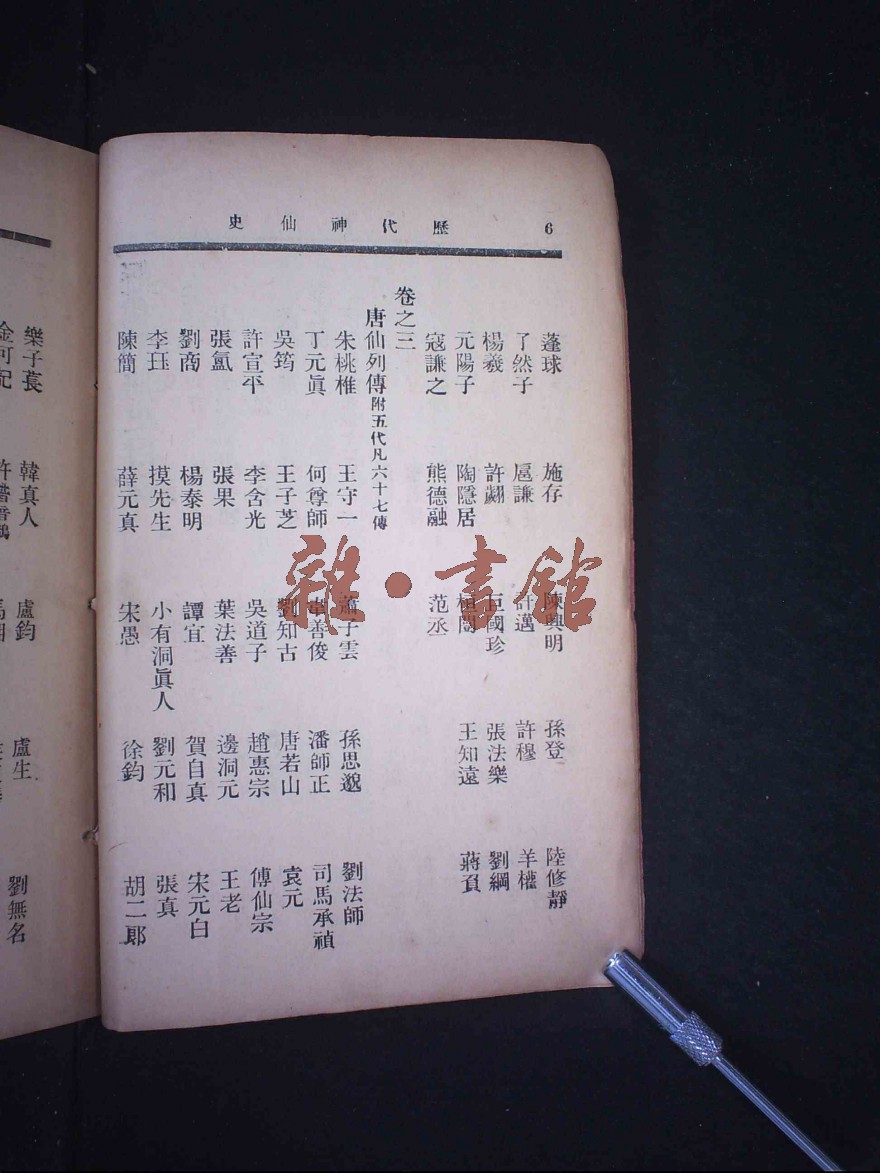 歷代神仙史 6
蓬球 施存 陳興明 孫登 陸修靜
了然子 扈謙 許邁 許穆 羊權
楊羲 許翽 巨國珍 張法樂 劉綱
元陽子 陶隱居 桓闓 王知遠 蔣負
寇謙之 熊德融 范丞
卷之三
唐仙列傳附五代凡六十七傳
朱桃椎 王守一 蕭子雲 孫思邈 劉法師
丁元眞 何尊師 韋善俊 潘師正 司馬承禎
吳筠 王子芝 劉知古 唐若山 袁元
許宣平 李含光 吳道子 趙惠宗 傅仙宗
張氳 張果 葉法善 邊洞元 王老
劉商 楊泰明 譚宜 賀自真 宋元白
李珏 摸先生 小有洞眞人 劉元和 張真
陳簡 薛元真 宋愚 徐鈞 胡二郞
樂子萇 韓真人 盧鈞 盧生 劉無名
金可記
雜·書館